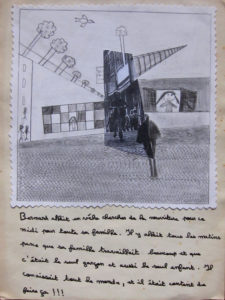 Bernard allait en ville chercher de la nourriture pour ce
midi pour toute sa famille. Il y allait tous les matins
parce que sa famille travaillait beaucoup et que
c'était le seul garçon et aussi le seul enfant. Il
connaissait tout le monde, et il était content de
faire ça !!!